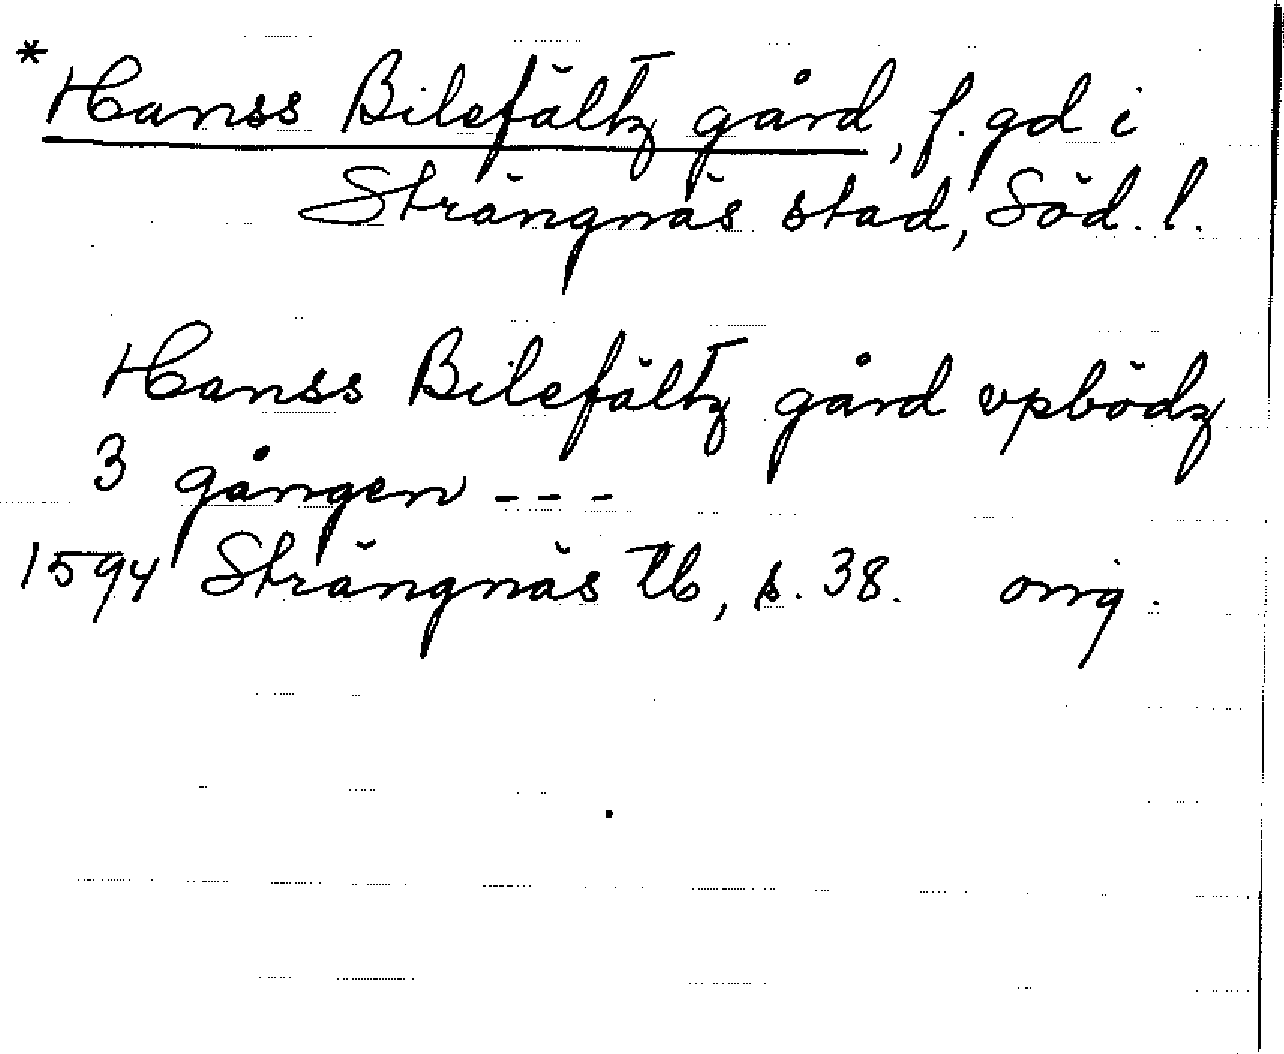 * Hanss Bilefältz gård, f. gd i
Strängnäs stad, Söd. l.
Hanss Bilefältz gård vpbödz
3 gången ---
1594 Strängnäs tb, s. 38. orig.